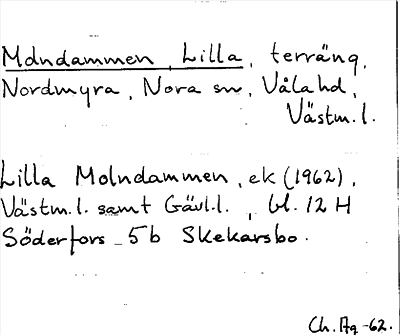 Molndammen, Lilla, terräng,
Nordmyra, Nora sn, Våla hd,
Västm.l.
Lilla Molndammen, ek (1962),
Västm.l. samt Gävl.l., bl. 12 H
Söderfors 5b Skekarsbo.
Ch. Ag -62.